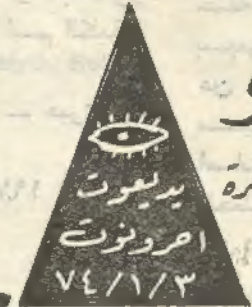 يديعوت
احرونوت
٧٤/١/٣